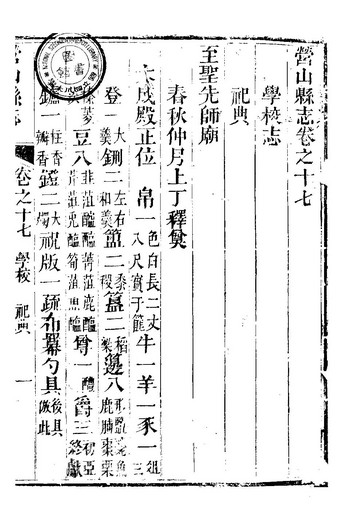 營山縣志卷之十七
學校志
祀典
至聖先師廟
春秋仲月上丁釋奠
大成殿正位 帛一色白長二丈八尺實于篚 牛一羊一豕一俎三
登一大羹 鉶二左右和羹 簠二黍稷 簋二稻粱 籩八形鹽棗魚鹿脯棗栗
榛菱 豆八韭菹醯醢菁菹鹿醢芹菹兎醢筍菹魚醢 尊一醴 爵三初亞終獻
鑪一炷香瓣香 鐙二大燭 祝版一疏布冪勺具後具倣此
營山縣志 卷之十七 學校 祀典 一